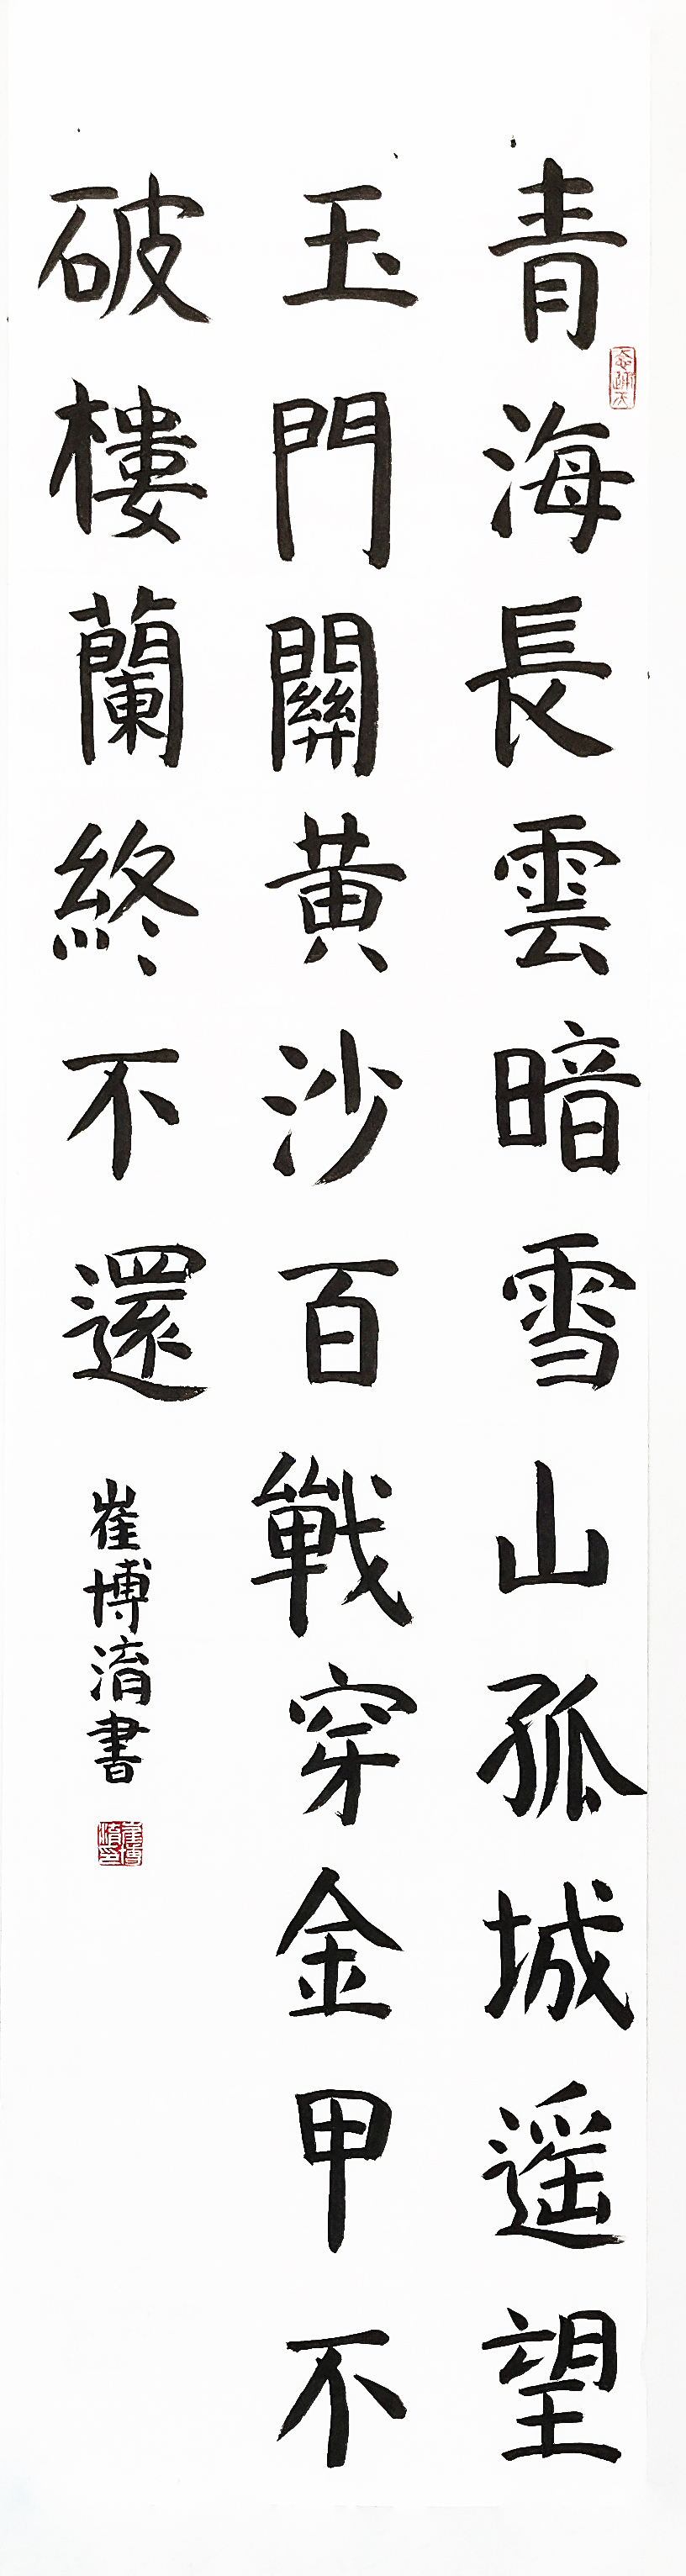 青海長雲暗雪山孤城遥望
玉門關黄沙百戰穿金甲不
破樓蘭終不還
崔博淯書